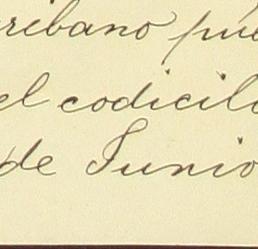 cribano pú
el codicil
de Junio